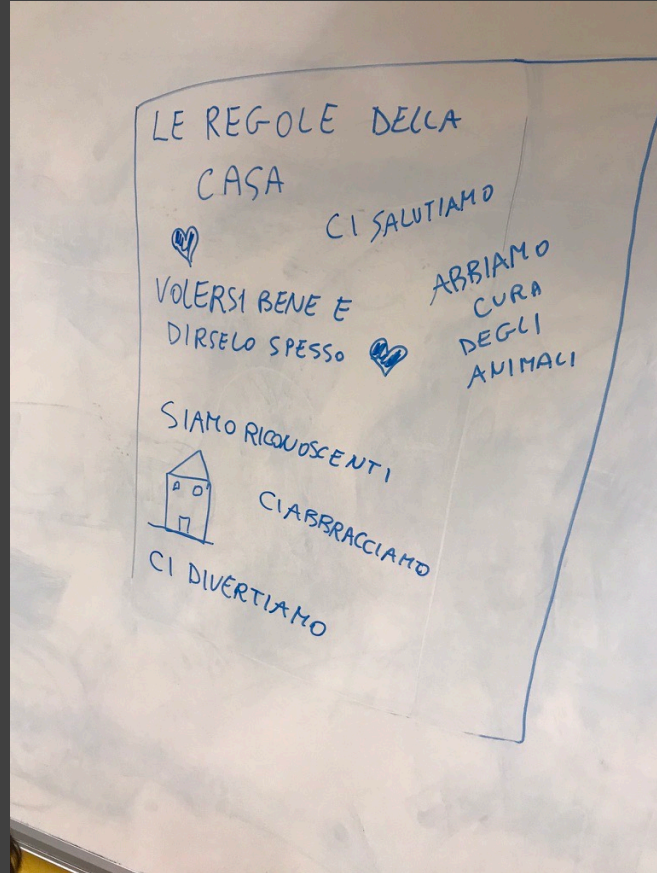 LE REGOLE DELLA
CASA
CI SALUTIAMO
VOLERSI BENE E
DIRSELO SPESSO
ABBIAMO
CURA
DEGLI
ANIMALI
SIAMO RICONOSCENTI
CI ABBRACCIAMO
CI DIVERTIAMO